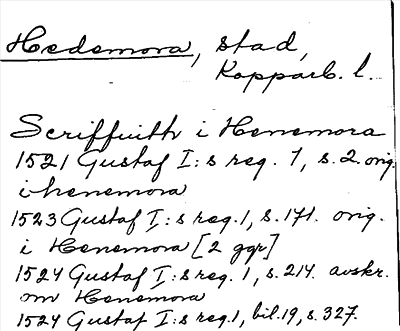 Hedemora, stad,
Kopparb. l.
Scriffuith i Henemora
1521 Gustaf I:s reg. 1, s. 2. orig.
i henemora
1523 Gustaf I:s reg. 1, s. 171. orig.
i Henemora [2 ggr]
1524 Gustaf I:s reg. 1, s. 214. avskr.
om Henemora
1524 Gustaf I:s reg. 1, bil. 19, s. 327.